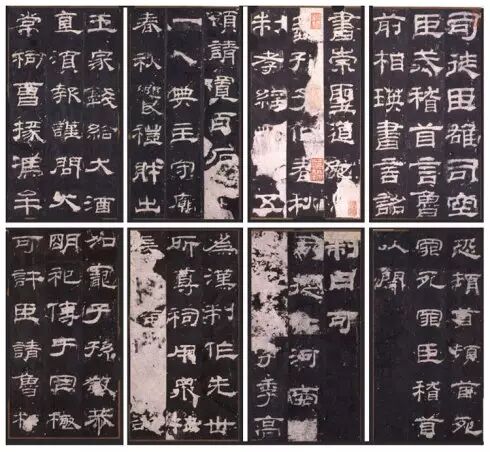 司徒臣雄司空
臣戒稽首言魯
前相瑛書言詔
書崇聖道勉
藝孔子作春秋
制孝經五
領請置百石
一人典主守廟
春秋饗禮財出
王家錢給犬酒
直須報謹問大
常祠曹掾馮牟
恐頓首頓首死
罪死罪臣稽首
以聞
制曰可
河南
字季高
為漢制作先世
所尊祠用眾牲
長備
加寵子孫敬恭
明祀傳于罔極
可許臣請魯相